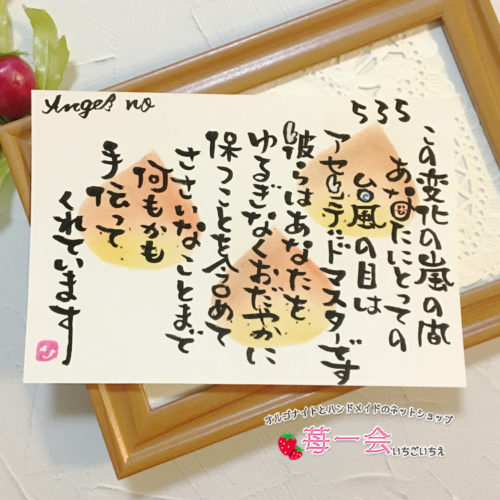 Angel no
535
この変化の嵐の間
あなたにとっての
台風の目は
アセンテッドマスターです
彼らはあなたを
ゆるぎなくおだやかに
保つことを含めて
ささいなことまで
何もかも
手伝って
くれています
オルゴナイトとハンドメイドのネットショップ
苺一会 いちごいちえ